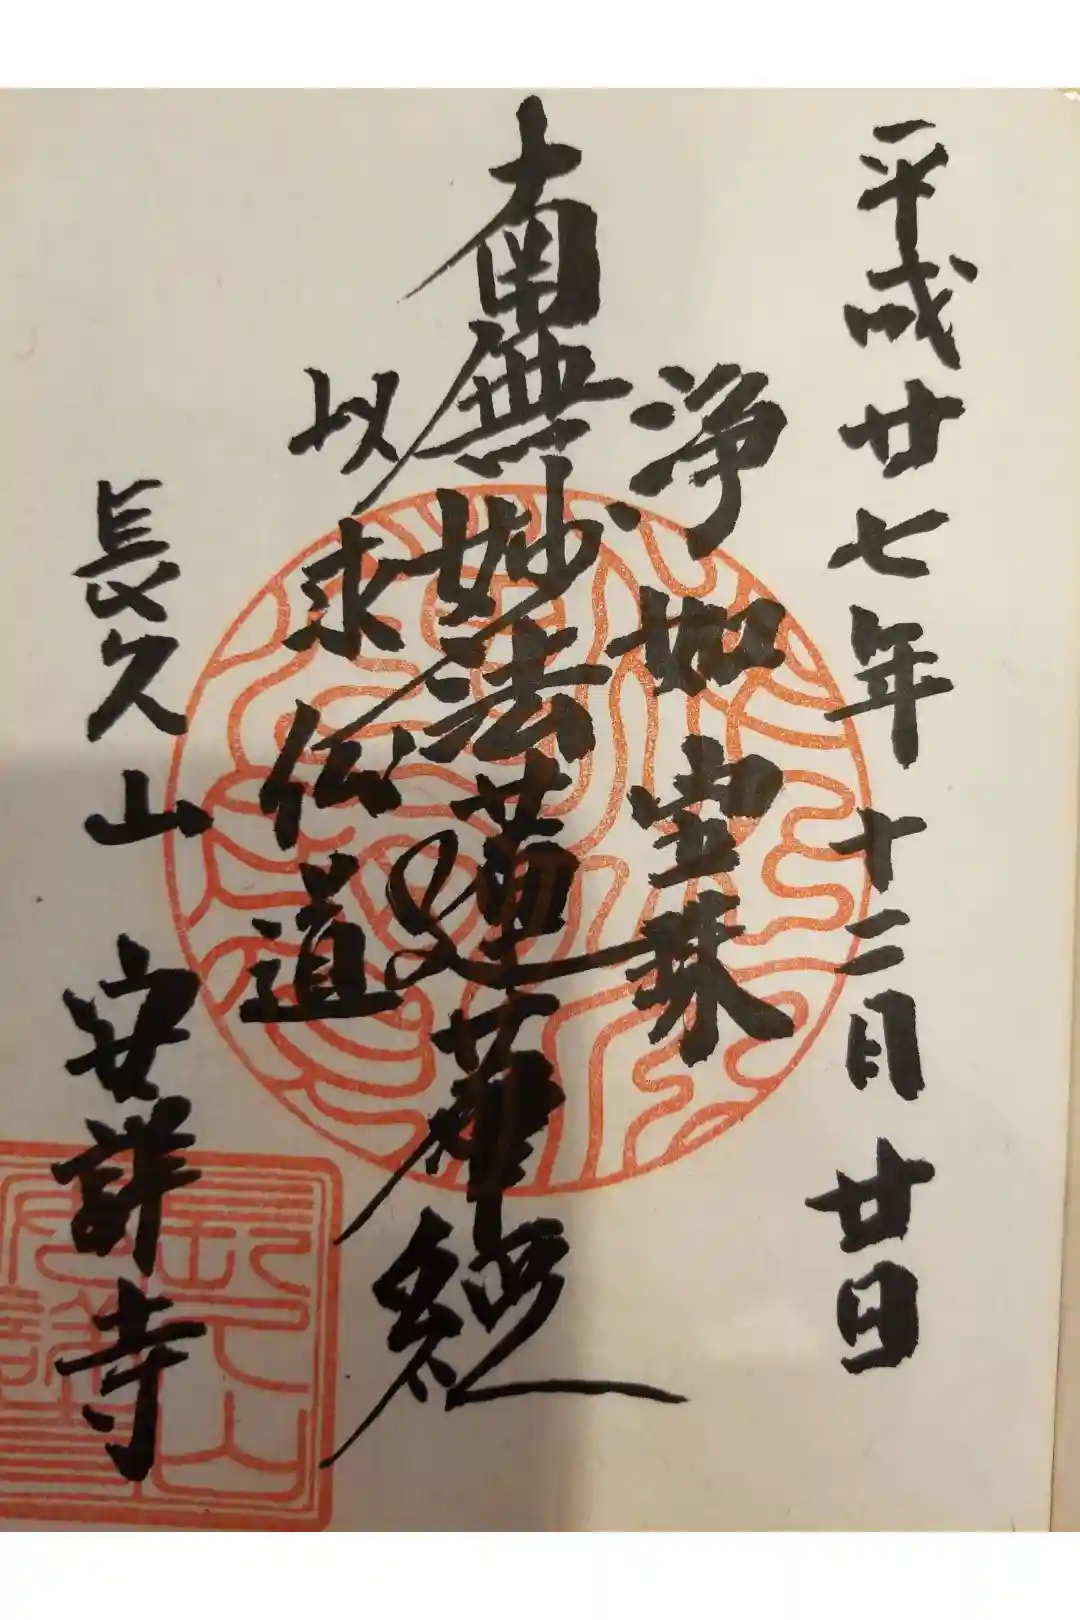 平成廿七年十二月廿日
浄如宝珠
南無妙法蓮華經
以求仏道
長久山 安詳寺